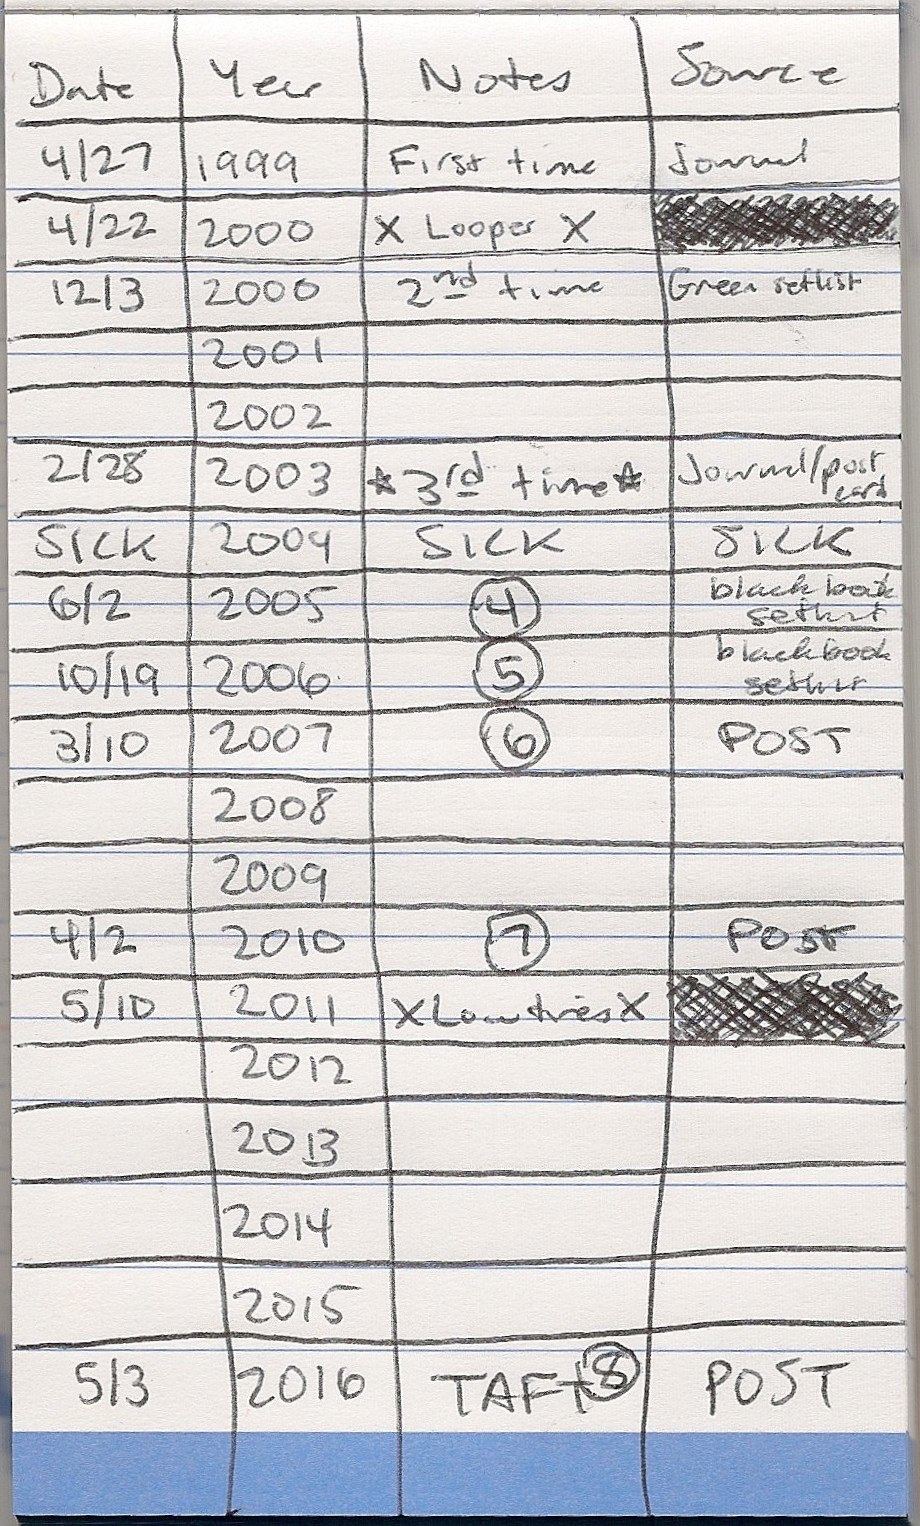 Date Year Notes Source
4/27 1999 First time Journal
4/22 2000 X Looper X
12/3 2000 2nd time Green setlist
2001
2002
2/28 2003 *3rd time* Journal/post card
SICK 2004 SICK SICK
6/2 2005 4 black book setlist
10/19 2006 5 black book setlist
3/10 2007 6 POST
2008
2009
4/2 2010 7 POST
5/10 2011 X Lowtimes X
2012
2013
2014
2015
5/3 2016 TAFT 8 POST